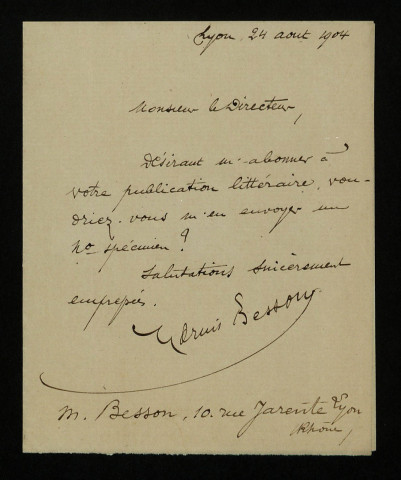 Lyon, 24 aout 1904
Monsieur le Directeur,
Désirant m'abonner à
votre publication littéraire, vou-
driez-vous m'en envoyer un
No spécimen ?
Salutations sincèrement
empressées.
Besson
M. Besson, 10. rue Jarente Lyon
(Rhône)